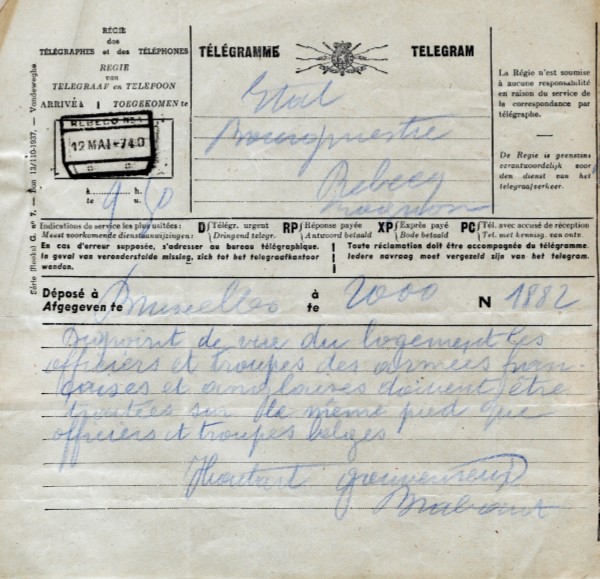 RÉGIE
des
TÉLÉGRAPHES et des TÉLÉPHONES
REGIE
van
TELEGRAAF en TELEFOON
ARRIVÉ à TOEGEKOMEN te
REBECQ N°1
12 MAI
à h.
te u.
9 50
TÉLÉGRAMME TELEGRAM
Etat
Bourgmestre
Rebecq
Rognon
La Régie n'est soumise
à aucune responsabilité
en raison du service de
la correspondance par
télégraphe.
De Regie is geenszins
verantwoordelijk voor
den dienst van het
telegraafverkeer.
Série (Reeks) G. n° 7. — Bon 13/110-1937. — Vandeweghe
Indications de service les plus usitées : D Télégr. urgent RP Réponse payée XP Exprès payé PC Tél. avec accusé de réception
Meest voorkomende dienstaanwijzingen: Dringend telegr. Antwoord betaald Bode betaald Tel. met kennisg. van ontv.
En cas d'erreur supposée, s'adresser au bureau télégraphique. Toute réclamation doit être accompagnée du télégramme.
In geval van veronderstelde missing, zich tot het telegraafkantoor Iedere navraag moet vergezeld zijn van het telegram.
wenden.
Déposé à Bruxelles à 2000 N 1882
Afgegeven te te
Du point de vue du logement les
officiers et troupes des armées fran-
çaises et anglaises doivent être
traitées sur le même pied que
officiers et troupes belges
Houtart gouverneur
Brabant